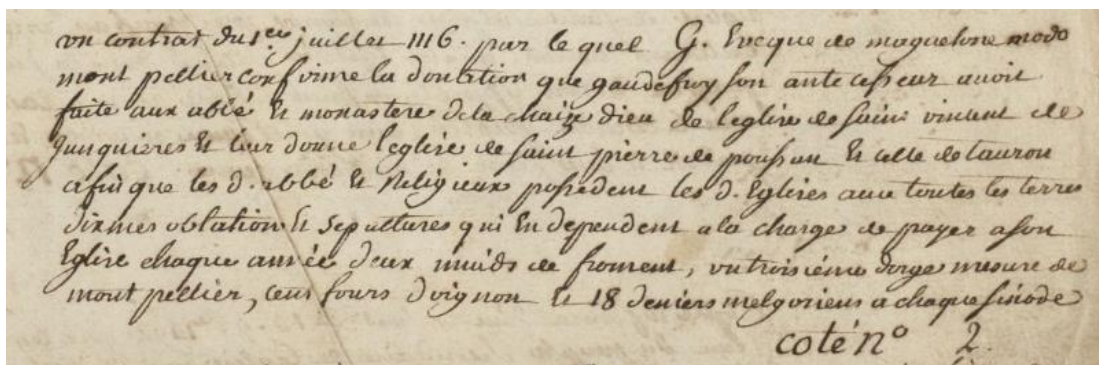 un contrat du 1.er juillet 1116. par le quel G. Eveque de maguelone modo
mont pellier confirme la donation que gaudefroy son ante cesseur avoit
faite aux abbé et monastere de la chaize dieu de l'eglise de saint vincent de
Junquieres et leur donne l'eglise de saint pierre de poussan et celle de tauron
afin que les d. abbé et Religieux possedent les d. Eglises avec toutes les terres
dixmes oblation et sepultures qui en dependent a la charge de payer a son
Eglise chaque année deux muids de froment, un troisième d'orge mesure de
mont pellier, cens fours d'oignon et 18 deniers melgoriens a chaque sinode
coté n° 2.